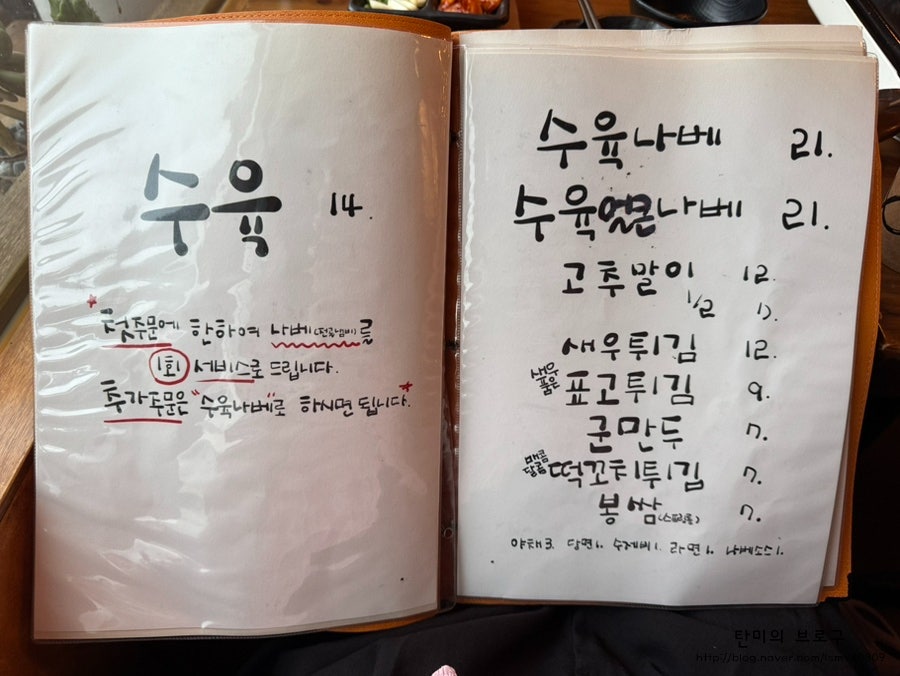 수육 14.
*첫주문에 한하여 나베(전골냄비)를
1회 서비스로 드립니다.
추가주문은 "수육나베"로 하시면 됩니다.*
수육나베 21.
수육얼큰나베 21.
고추말이 12.
1/2 7.
새우튀김 12.
새우품은 표고튀김 9.
군만두 7.
매콤달콤 떡꼬치튀김 7.
봉쌈(스프링롤) 7.
야채3. 당면1. 수제비1. 라면1. 나베소스1.
탄미의 브로그